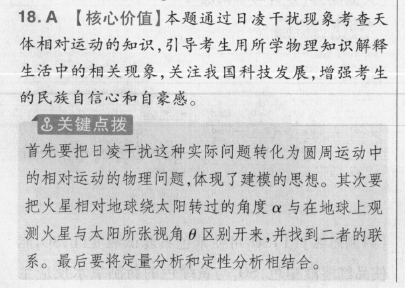 18.A 【核心价值】本题通过日凌干扰现象考查天
体相对运动的知识,引导考生用所学物理知识解释
生活中的相关现象,关注我国科技发展,增强考生
的民族自信心和自豪感。
关键点拨
首先要把日凌干扰这种实际问题转化为圆周运动中
的相对运动的物理问题,体现了建模的思想。其次要
把火星相对地球绕太阳转过的角度 α 与在地球上观
测火星与太阳所张视角 θ 区别开来,并找到二者的联
系。最后要将定量分析和定性分析相结合。